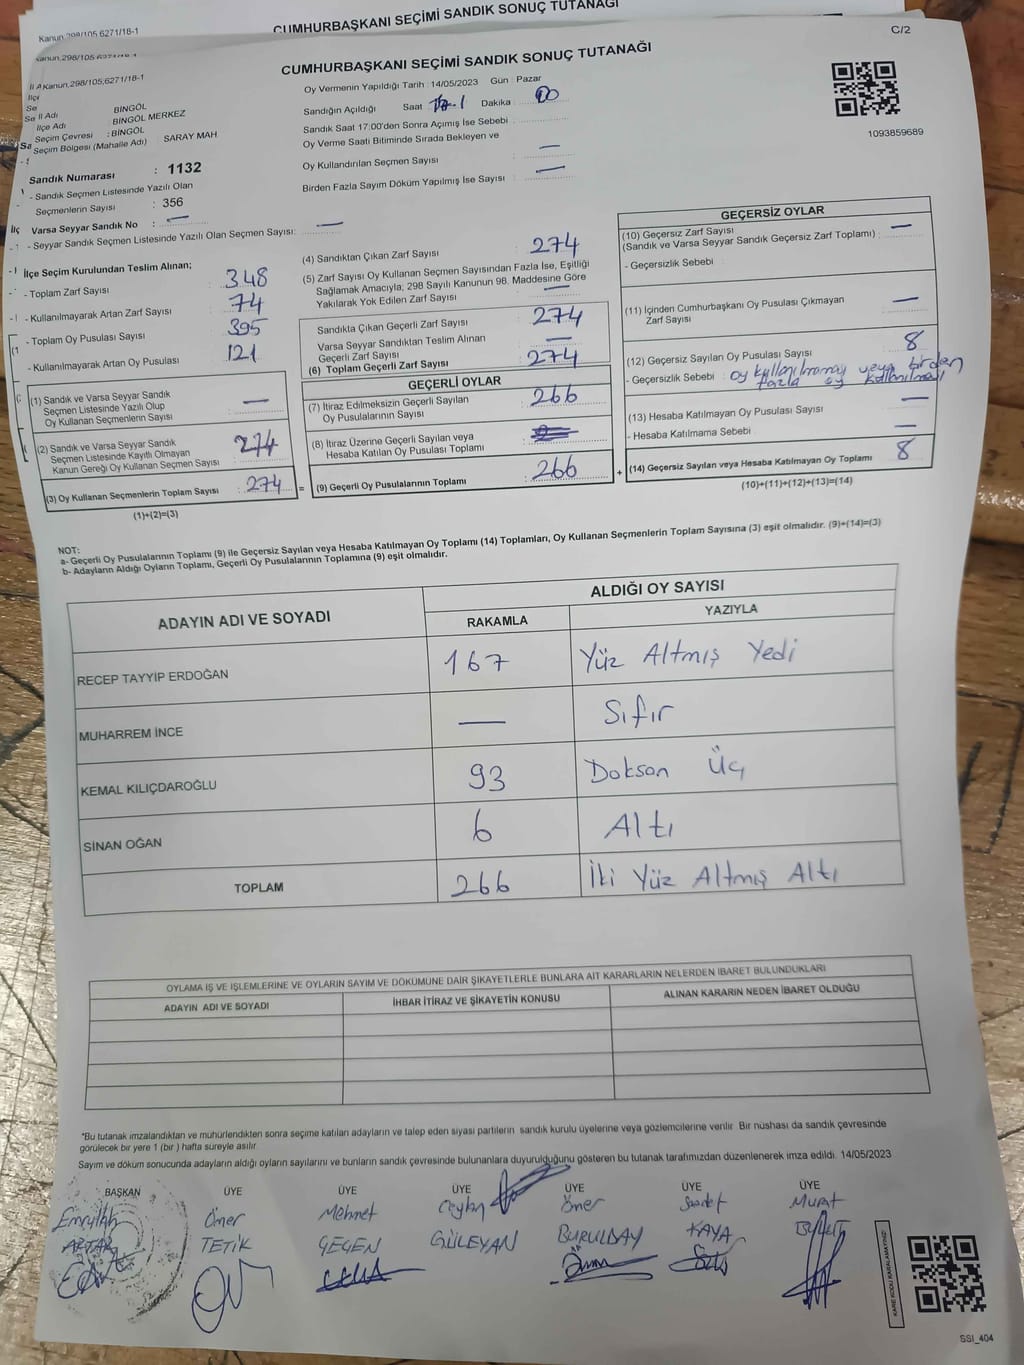 CUMHURBAŞKANI SEÇİMİ SANDIK SONUÇ TUTANAĞI
Kanun.298/105,6271/18-1
C/2
CUMHURBAŞKANI SEÇİMİ SANDIK SONUÇ TUTANAĞI
Kanun.298/105,6271/18-1
İl Adı BİNGÖL
İlçe Adı BİNGÖL MERKEZ
Seçim Çevresi : BİNGÖL
Seçim Bölgesi (Mahalle Adı) SARAY MAH
Sandık Numarası : 1132
- Sandık Seçmen Listesinde Yazılı Olan
Seçmenlerin Sayısı : 356
Varsa Seyyar Sandık No : —
- Seyyar Sandık Seçmen Listesinde Yazılı Olan Seçmen Sayısı: —
Oy Vermenin Yapıldığı Tarih : 14/05/2023 Gün : Pazar
Sandığın Açıldığı Saat Dakika : 00
Sandık Saat 17:00'den Sonra Açımış İse Sebebi :
Oy Verme Saati Bitiminde Sırada Bekleyen ve
Oy Kullandırılan Seçmen Sayısı : —
Birden Fazla Sayım Döküm Yapılmış İse Sayısı : —
1093859689
İlçe Seçim Kurulundan Teslim Alınan;
- Toplam Zarf Sayısı : 348
- Kullanılmayarak Artan Zarf Sayısı : 74
- Toplam Oy Pusulası Sayısı : 395
- Kullanılmayarak Artan Oy Pusulası : 121
(1) Sandık ve Varsa Seyyar Sandık
Seçmen Listesinde Yazılı Olup
Oy Kullanan Seçmenlerin Sayısı : —
(2) Sandık ve Varsa Seyyar Sandık
Seçmen Listesinde Kayıtlı Olmayan
Kanun Gereği Oy Kullanan Seçmen Sayısı : 274
(3) Oy Kullanan Seçmenlerin Toplam Sayısı : 274
(1)+(2)=(3)
(4) Sandıktan Çıkan Zarf Sayısı : 274
(5) Zarf Sayısı Oy Kullanan Seçmen Sayısından Fazla İse, Eşitliği
Sağlamak Amacıyla; 298 Sayılı Kanunun 98. Maddesine Göre
Yakılarak Yok Edilen Zarf Sayısı : —
Sandıkta Çıkan Geçerli Zarf Sayısı : 274
Varsa Seyyar Sandıktan Teslim Alınan
Geçerli Zarf Sayısı : —
(6) Toplam Geçerli Zarf Sayısı : 274
GEÇERLİ OYLAR
(7) İtiraz Edilmeksizin Geçerli Sayılan
Oy Pusulalarının Sayısı : 266
(8) İtiraz Üzerine Geçerli Sayılan veya
Hesaba Katılan Oy Pusulası Toplamı :
= (9) Geçerli Oy Pusulalarının Toplamı : 266
GEÇERSİZ OYLAR
(10) Geçersiz Zarf Sayısı
(Sandık ve Varsa Seyyar Sandık Geçersiz Zarf Toplamı) : —
- Geçersizlik Sebebi :
(11) İçinden Cumhurbaşkanı Oy Pusulası Çıkmayan
Zarf Sayısı : —
(12) Geçersiz Sayılan Oy Pusulası Sayısı : 8
- Geçersizlik Sebebi : oy kullanılmamay veya birden
fazla oy kullanılması
(13) Hesaba Katılmayan Oy Pusulası Sayısı : —
- Hesaba Katılmama Sebebi : —
+ (14) Geçersiz Sayılan veya Hesaba Katılmayan Oy Toplamı : 8
(10)+(11)+(12)+(13)=(14)
NOT:
a- Geçerli Oy Pusulalarının Toplamı (9) ile Geçersiz Sayılan veya Hesaba Katılmayan Oy Toplamı (14) Toplamları, Oy Kullanan Seçmenlerin Toplam Sayısına (3) eşit olmalıdır. (9)+(14)=(3)
b- Adayların Aldığı Oyların Toplamı, Geçerli Oy Pusulalarının Toplamına (9) eşit olmalıdır.
ADAYIN ADI VE SOYADI ALDIĞI OY SAYISI
RAKAMLA YAZIYLA
RECEP TAYYİP ERDOĞAN 167 Yüz Altmış Yedi
MUHARREM İNCE — Sıfır
KEMAL KILIÇDAROĞLU 93 Doksan Üç
SİNAN OĞAN 6 Altı
TOPLAM 266 İki Yüz Altmış Altı
OYLAMA İŞ VE İŞLEMLERİNE VE OYLARIN SAYIM VE DÖKÜMÜNE DAİR ŞİKAYETLERLE BUNLARA AİT KARARLARIN NELERDEN İBARET BULUNDUKLARI
ADAYIN ADI VE SOYADI İHBAR İTİRAZ VE ŞİKAYETİN KONUSU ALINAN KARARIN NEDEN İBARET OLDUĞU
*Bu tutanak imzalandıktan ve mühürlendikten sonra seçime katılan adayların ve talep eden siyasi partilerin sandık kurulu üyelerine veya gözlemcilerine verilir. Bir nüshası da sandık çevresinde
görülecek bir yere 1 (bir) hafta süreyle asılır.
Sayım ve döküm sonucunda adayların aldığı oyların sayılarını ve bunların sandık çevresinde bulunanlara duyurulduğunu gösteren bu tutanak tarafımızdan düzenlenerek imza edildi. 14/05/2023
BAŞKAN ÜYE ÜYE ÜYE ÜYE ÜYE ÜYE
Emrullah Ömer Mehmet Ceylan Ömer Saadet Murat
TETİK GEÇEN GÜLEYAN BURULDAY KAYA
KARE KODU KARALAMAYINIZ!
SSI_404